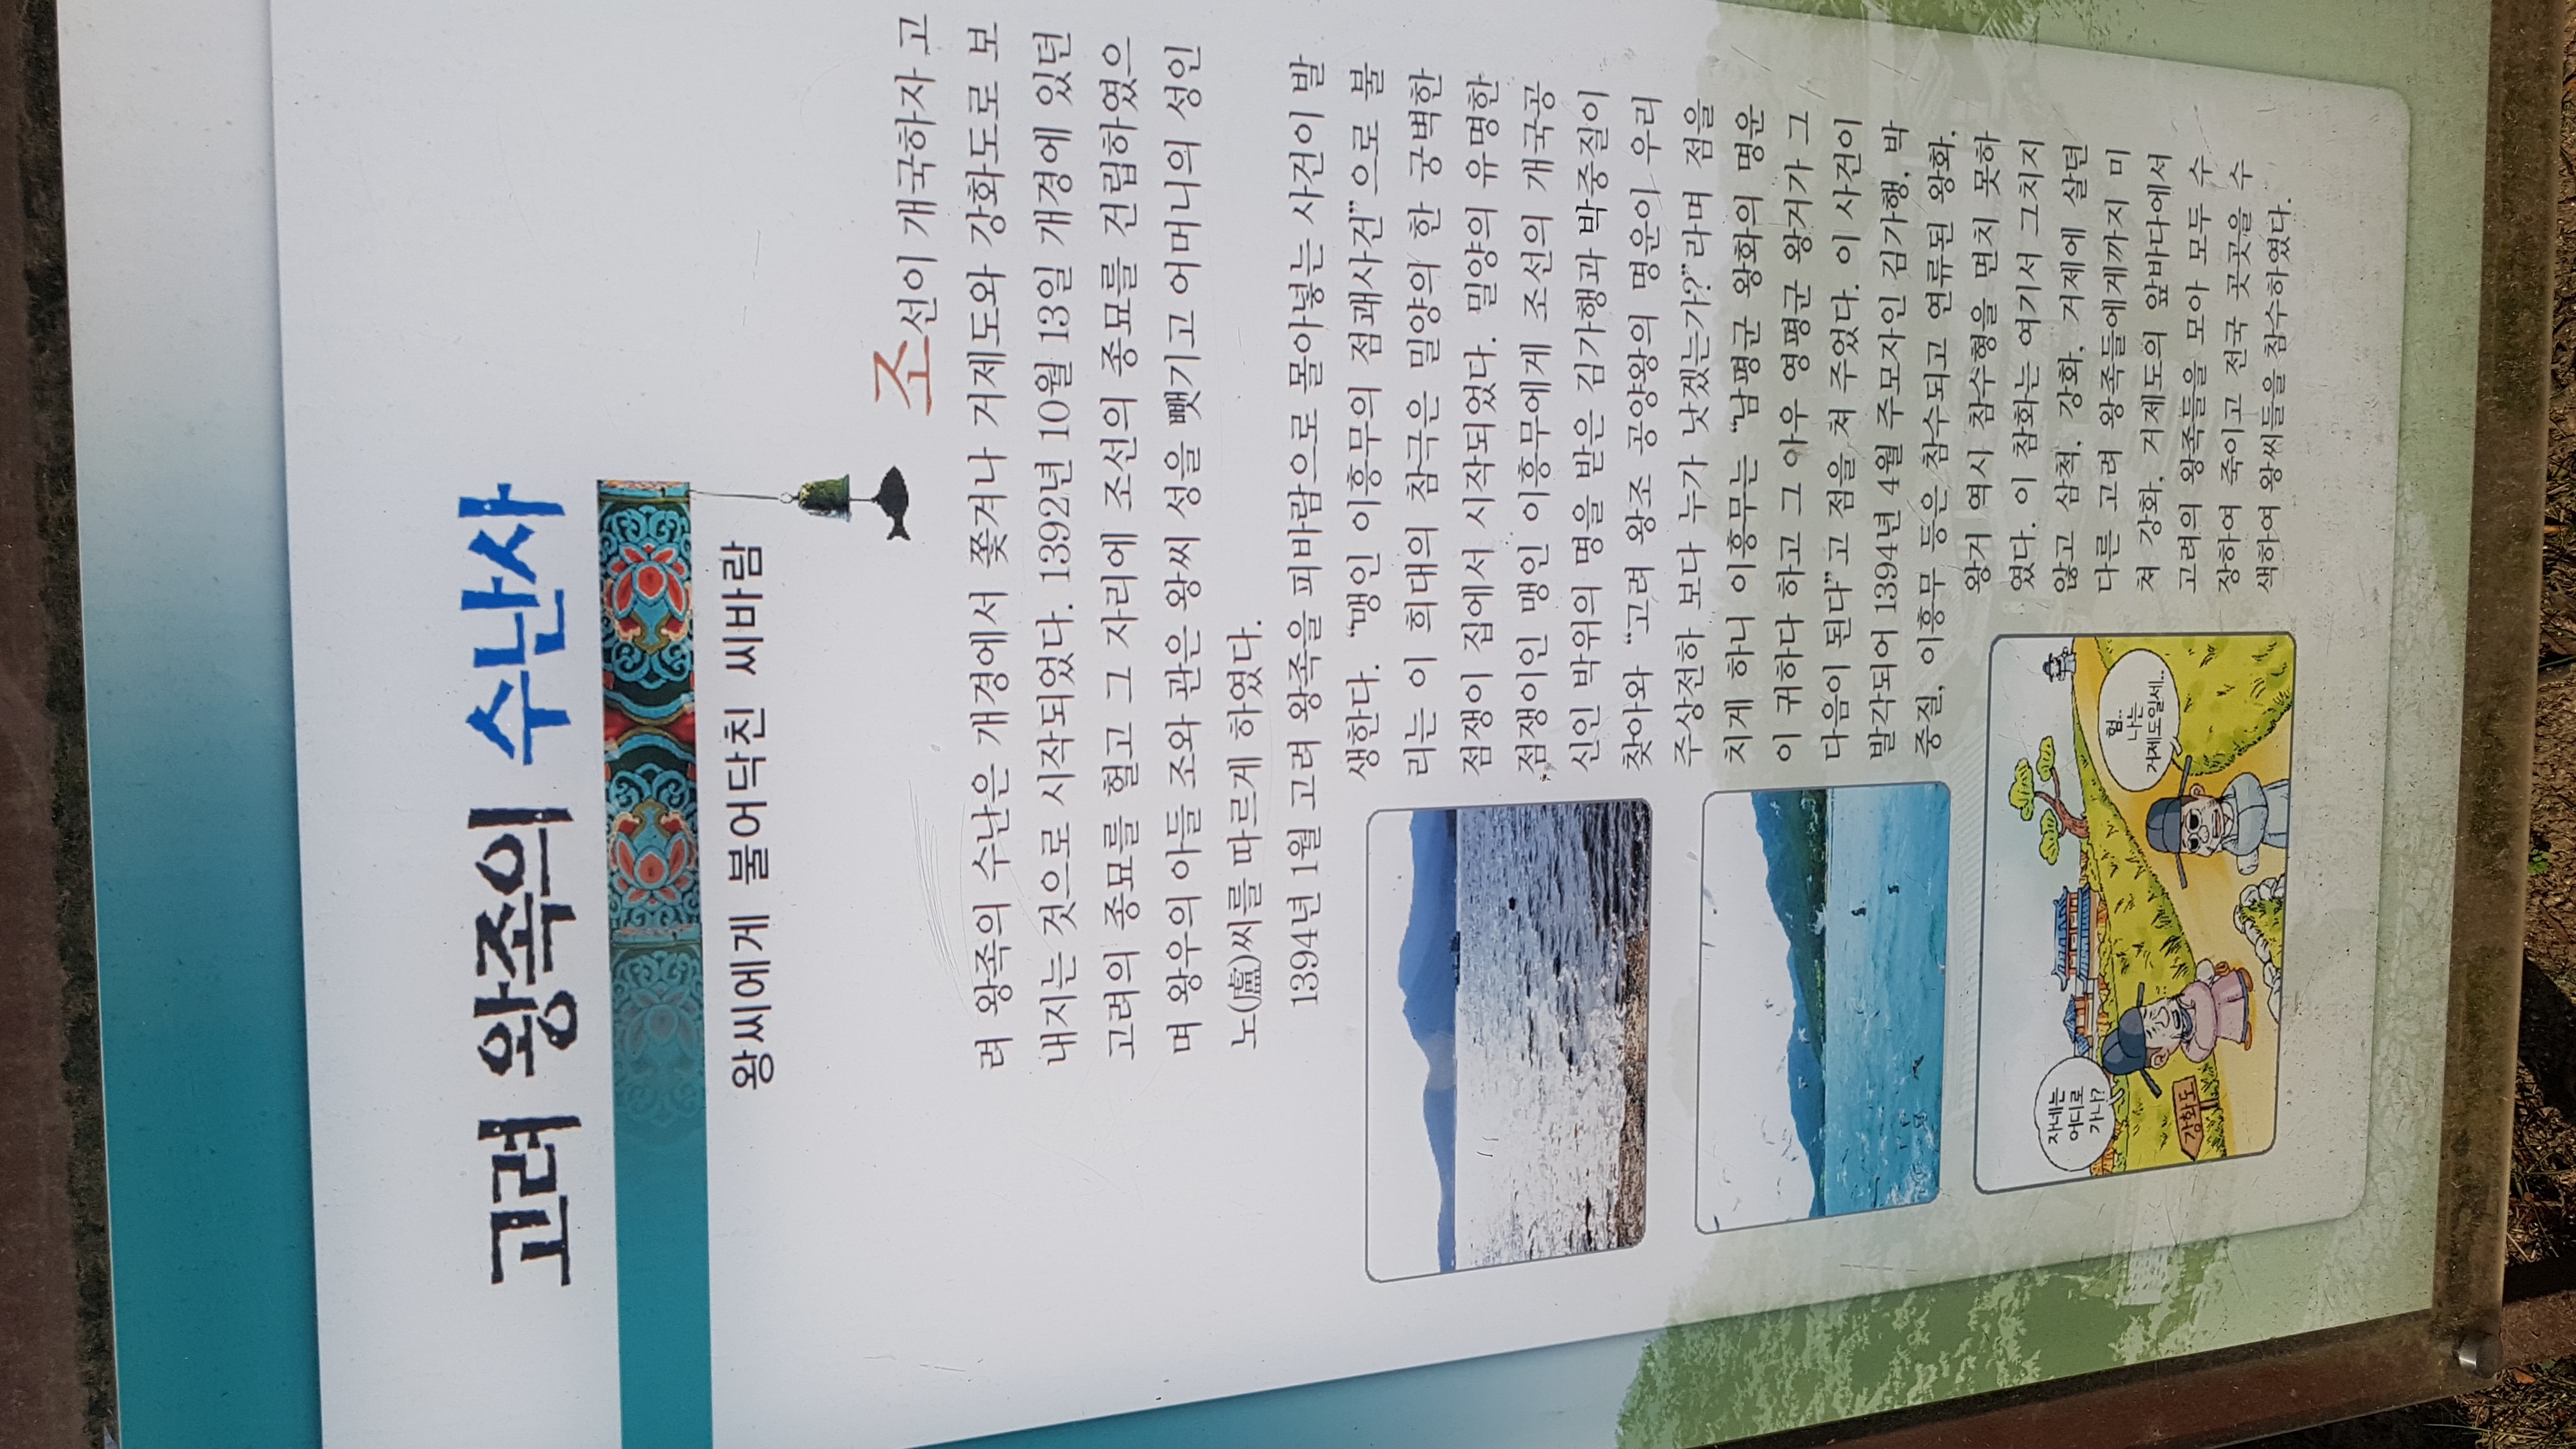 고려 왕족의 수난사
왕씨에게 불어닥친 씨바람
조선이 개국하자 고
려 왕족의 수난은 개경에서 쫓겨나 거제도와 강화도로 보
내지는 것으로 시작되었다. 1392년 10월 13일 개경에 있던
고려의 종묘를 헐고 그 자리에 조선의 종묘를 건립하였으
며 왕우의 아들 조와 관은 왕씨 성을 뺏기고 어머니의 성인
노(盧)씨를 따르게 하였다.
1394년 1월 고려 왕족을 피바람으로 몰아넣는 사건이 발
생한다. “맹인 이흥무의 점괘사건”으로 불
리는 이 희대의 참극은 밀양의 한 궁벽한
점쟁이 집에서 시작되었다. 밀양의 유명한
점쟁이인 맹인 이흥무에게 조선의 개국공
신인 박위의 명을 받은 김가행과 박중질이
찾아와 “고려 왕조 공양왕의 명운이 우리
주상전하 보다 누가 낫겠는가?”라며 점을
치게 하니 이흥무는 “남평군 왕화의 명운
이 귀하다 하고 그 아우 영평군 왕거가 그
다음이 된다”고 점을 쳐 주었다. 이 사건이
발각되어 1394년 4월 주모자인 김가행, 박
중질, 이흥무 등은 참수되고 연류된 왕화,
왕거 역시 참수형을 면치 못하
였다. 이 참화는 여기서 그치지
않고 삼척, 강화, 거제에 살던
다른 고려 왕족들에게까지 미
쳐 강화, 거제도의 앞바다에서
고려의 왕족들을 모아 모두 수
장하여 죽이고 전국 곳곳을 수
색하여 왕씨들을 참수하였다.
자네는
어디로
가나?
강화도
험..
나는
거제도일세..